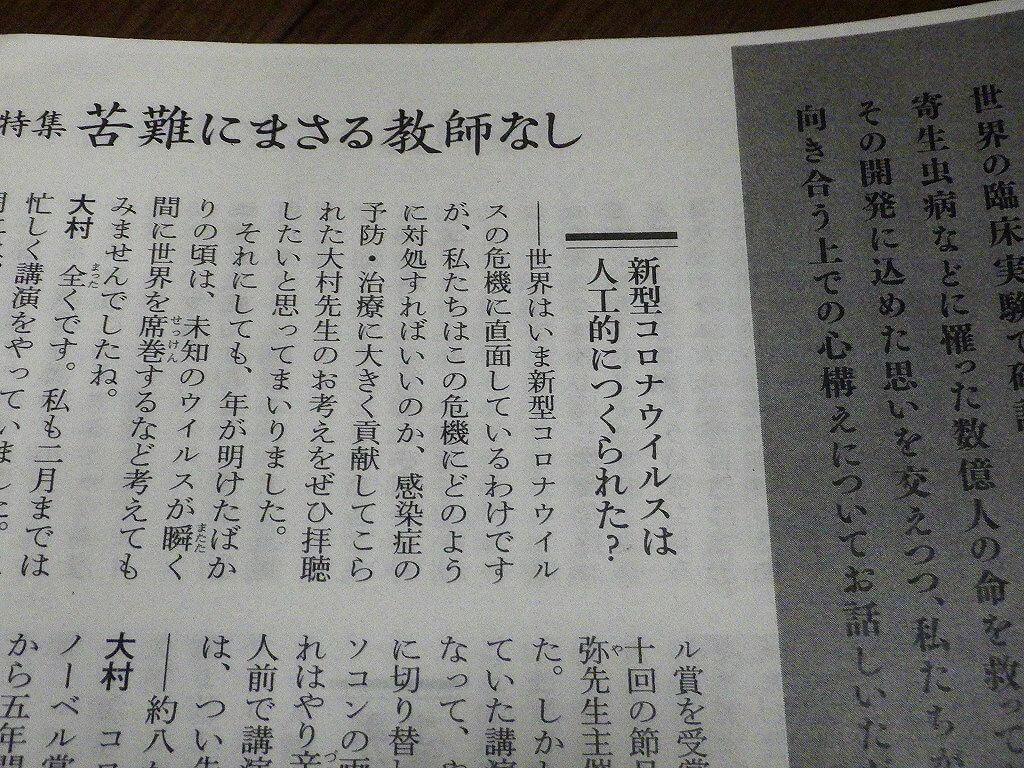 特集 苦難にまさる教師なし
世界の臨床実験で確
寄生虫病などに罹った数億人の命を救って
その開発に込めた思いを交えつつ、私たちが
向き合う上での心構えについてお話しいただ
新型コロナウイルスは
人工的につくられた?
――世界はいま新型コロナウイル
スの危機に直面しているわけです
が、私たちはこの危機にどのよう
に対処すればいいのか、感染症の
予防・治療に大きく貢献してこら
れた大村先生のお考えをぜひ拝聴
したいと思ってまいりました。
それにしても、年が明けたばか
りの頃は、未知のウイルスが瞬く
間に世界を席巻するなど考えても
みませんでしたね。
大村 全くです。私も二月までは
忙しく講演をやっていました。
ル賞を受賞
十回の節目
弥先生主催
た。しか
ていた講演
なって、
に切り替
ソコンの画
れはやり辛
人前で講演
は、つい先
――約八
大村 コロ
ノーベル賞
から五年間